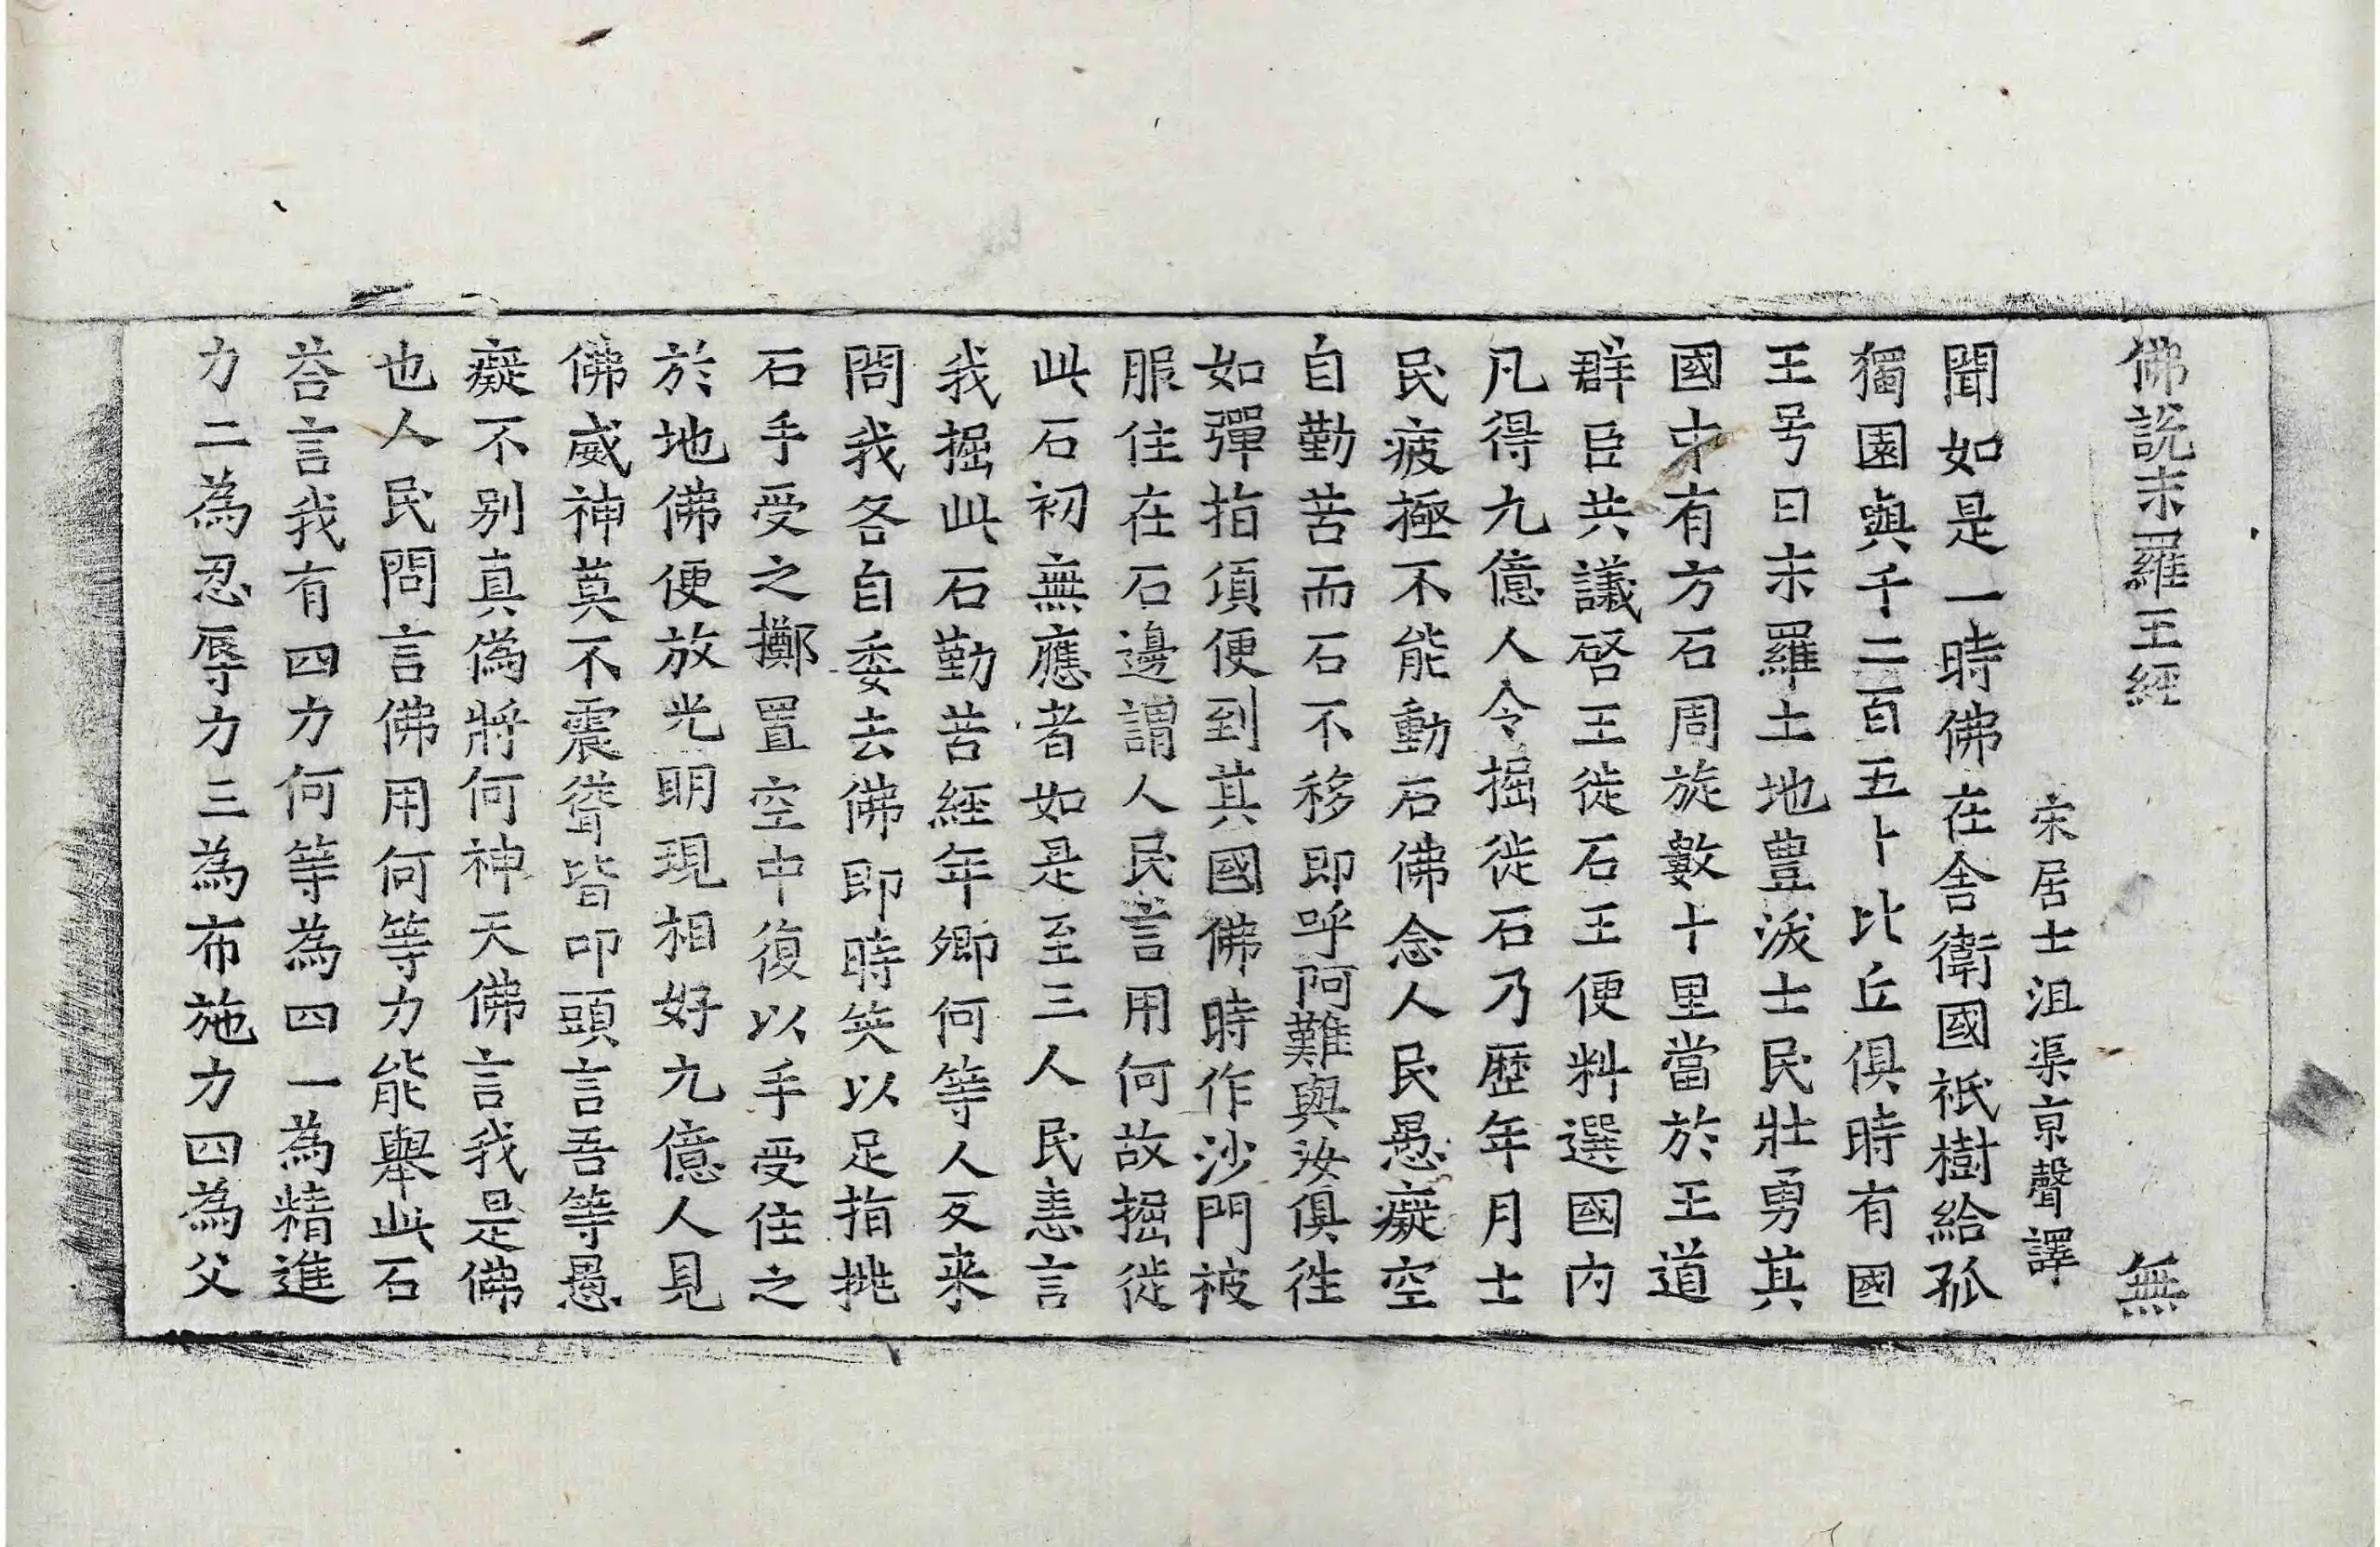 佛說末羅王經 無
宋居士沮渠京聲譯
聞如是一時佛在舍衛國祇樹給孤
獨園與千二百五十比丘俱時有國
王号曰末羅土地豊沃士民壯勇其
國中有方石周旋數十里當於王道
群臣共議啓王徙石王便料選國內
凡得九億人令掘徙石乃歷年月士
民疲極不能動石佛念人民愚癡空
自勤苦而石不移即呼阿難與汝俱往
如彈指頃便到其國佛時作沙門被
服住在石邊謂人民言用何故掘徙
此石初無應者如是至三人民恚言
我掘此石勤苦經年卿何等人反来
問我各自委去佛即時笑以足指挑
石手受之擲置空中復以手受住之
於地佛便放光明現相好九億人見
佛威神莫不震聳皆叩頭言吾等愚
癡不別真偽將何神天佛言我是佛
也人民問言佛用何等力能舉此石
荅言我有四力何等為四一為精進
力二為忍辱力三為布施力四為父